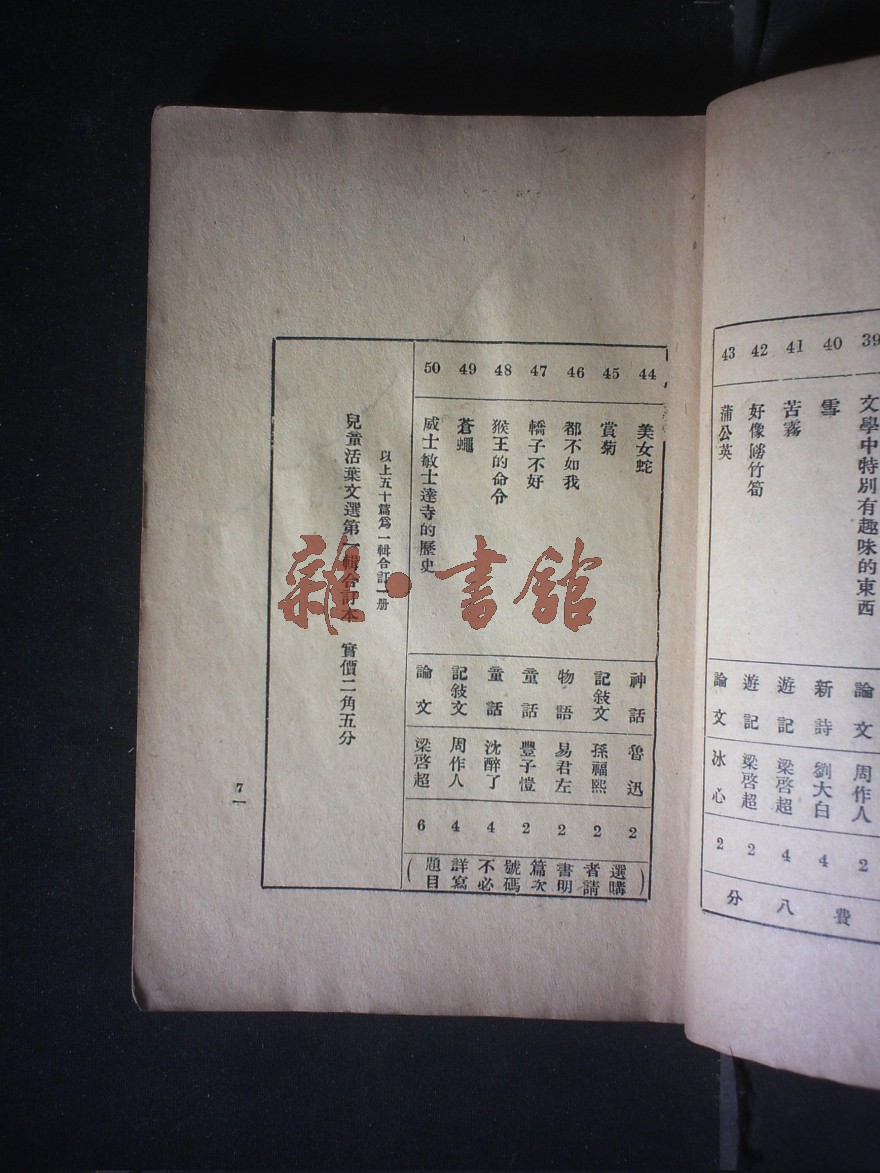 39 文學中特別有趣味的東西 論文 周作人 2
40 雪 新詩 劉大白 4
41 苦霧 遊記 梁啓超 4
42 好像牓竹筍 遊記 梁啓超 2
43 蒲公英 論文 冰心 2
費八分
44 美女蛇 神話 魯迅 2
45 賞菊 記敍文 孫福熙 2
46 都不如我 物語 易君左 2
47 轎子不好 童話 豐子愷 2
48 猴王的命令 童話 沈醉了 4
49 蒼蠅 記敍文 周作人 4
50 威士敏士達寺的歷史 論文 梁啓超 6
(選購者請書明篇次號碼不必詳寫題目)
以上五十篇爲一輯合訂一册
兒童活葉文選第一輯合訂本 實價二角五分
7
雜·書館